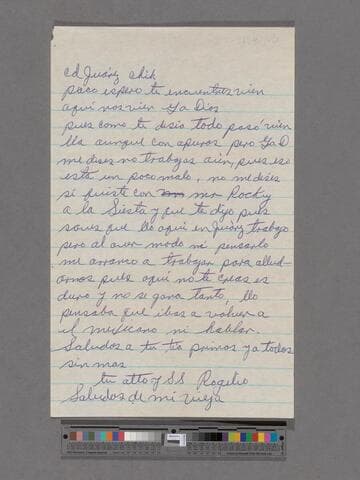 cd Juárez chih
paco espero te encuentres vien
aqui nos vien Ga Dios
pues como te desia todo pasó vien
lla aunque con apuros pero Ga D
me dises no trabajas aien, pues eso
esta un poco malo, no me dises
si fuiste con mr Rocky
a la Siesta y que te dijo pues
saves que llo aqui en Juárez trabajo
pero al aver modo ni pensarlo
me arranco a trabajar para allud-
arnos pues aqui no te creas es
duro y no se gana tanto, llo
pensaba que ibas a volver a
el mexicano ni hablar.
Saludos a tu tia primos y a todos
sin mas
tu atto y SS Rogelio
Saludos de mi vieja